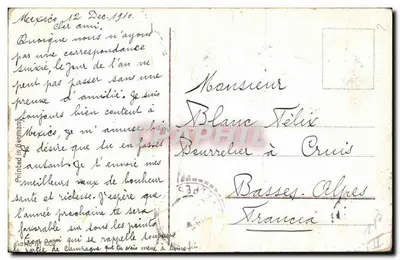 Mexico, 12 Dec. 1910.
Cher ami.
Quoique nous n'ayons
pas une correspondance
suivie, le Jour de l'an ne
peut pas passer sans une
preuve d'amitié. Je suis
toujours bien content à
Mexico, Je m'amuse
Je désire que tu en fasses
autant. Je t'envoie mes
meilleurs vœux de bonheur
santé et richesse. J'espère que
l'année prochaine te sera
favorable sur tous les points
ami qui se rappelle toujours
la partie de Campagne que tu
Monsieur
Blanc Félix
Bourrelier à Cruis
Basses-Alpes
Francia
Printed in Germany
DELCAMPE